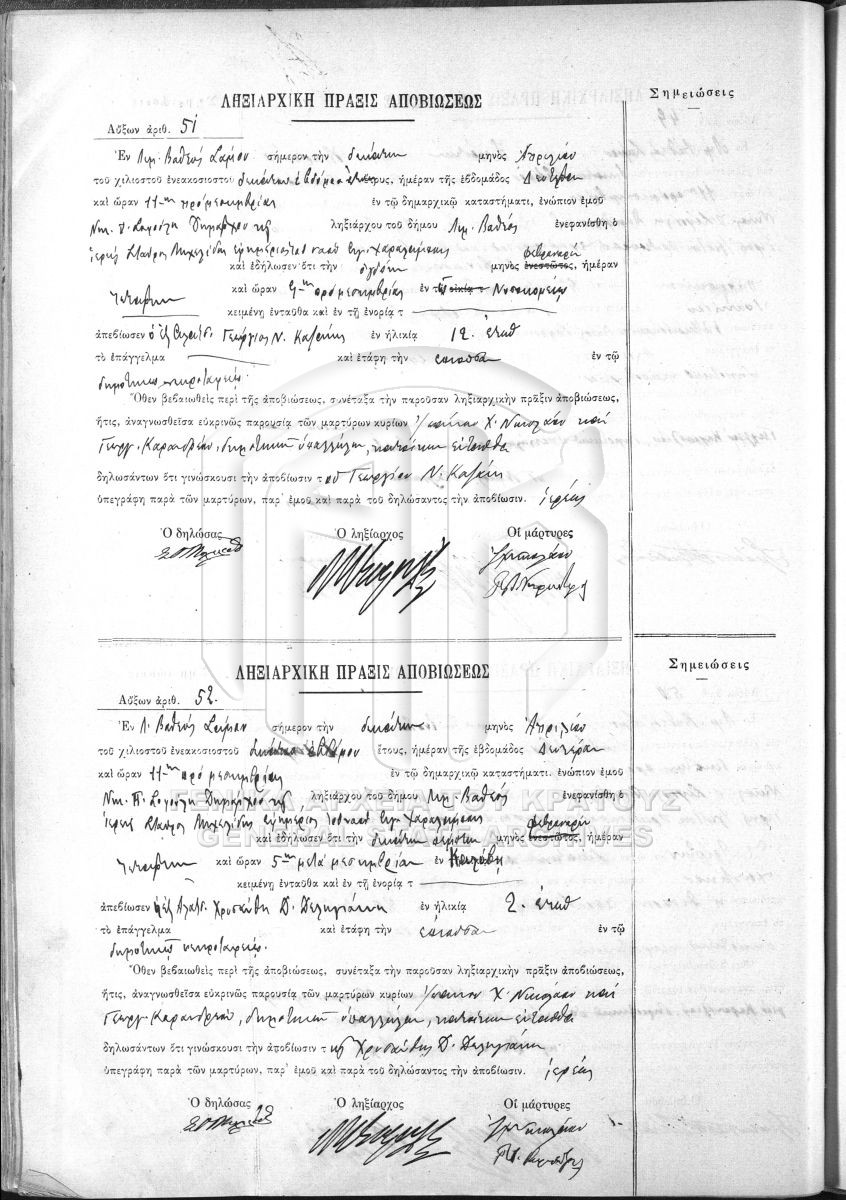 ΛΗΞΙΑΡΧΙΚΗ ΠΡΑΞΙΣ ΑΠΟΒΙΩΣΕΩΣ
Σημειώσεις
Αὔξων ἀριθ. 51
Ἐν Λιμ. Βαθέος Σάμου σήμερον τὴν δεκάτην μηνὸς Ἀπριλίου
τοῦ χιλιοστοῦ ἐνεακοσιοστοῦ δεκάτου ἑβδόμου ἔτους, ἡμέραν τῆς ἑβδομάδος Δευτέραν
καὶ ὥραν 11-ην πρὸ μεσημβρίας ἐν τῷ δημαρχικῷ καταστήματι, ἐνώπιον ἐμοῦ
Νικ. Δημάρχου ληξιάρχου τοῦ δήμου Λιμ. Βαθέος ἐνεφανίσθη ὁ
ἱερεὺς Σταῦρος Μιχελίδης ἐφημέριος τοῦ ναοῦ Ἁγ. Χαραλάμπους
καὶ ἐδήλωσεν ὅτι τὴν ὀγδόην μηνὸς Φεβρουαρίου ἐνεστῶτος, ἡμέραν
Τετάρτην καὶ ὥραν 9-ην πρὸ μεσημβρίας ἐν τῷ οἰκίᾳ τ Νοσοκομείῳ
κειμένῃ ἐνταῦθα καὶ ἐν τῇ ἐνορίᾳ τ
ἀπεβίωσεν ὁ Γεώργιος Ν. Καζάκης ἐν ἡλικίᾳ 12 ἐτῶν
τὸ ἐπάγγελμα καὶ ἐτάφη τὴν ἐπιοῦσαν ἐν τῷ
δημοτικῷ νεκροταφείῳ.
Ὅθεν βεβαιωθεὶς περὶ τῆς ἀποβιώσεως, συνέταξα τὴν παροῦσαν ληξιαρχικὴν πρᾶξιν ἀποβιώσεως,
ἥτις, ἀναγνωσθεῖσα εὐκρινῶς παρουσίᾳ τῶν μαρτύρων κυρίων Χ. Νικολάου καὶ
Γεωργ. Καρανδρέου, δημοτικῶν ὑπαλλήλων, κατοίκων ἐνταῦθα
δηλωσάντων ὅτι γινώσκουσι τὴν ἀποβίωσιν τοῦ Γεωργίου Ν. Καζάκη
ὑπεγράφη παρὰ τῶν μαρτύρων, παρ' ἐμοῦ καὶ παρὰ τοῦ δηλώσαντος τὴν ἀποβίωσιν. ἱερέως
Ὁ δηλώσας Ὁ ληξίαρχος Οἱ μάρτυρες
ΛΗΞΙΑΡΧΙΚΗ ΠΡΑΞΙΣ ΑΠΟΒΙΩΣΕΩΣ
Σημειώσεις
Αὔξων ἀριθ. 52.
Ἐν Λ. Βαθέος Σάμου σήμερον τὴν δεκάτην μηνὸς Ἀπριλίου
τοῦ χιλιοστοῦ ἐνεακοσιοστοῦ δεκάτου ἑβδόμου ἔτους, ἡμέραν τῆς ἑβδομάδος Δευτέραν
καὶ ὥραν 11-ην πρὸ μεσημβρίας ἐν τῷ δημαρχικῷ καταστήματι, ἐνώπιον ἐμοῦ
Νικ. Δημάρχου ληξιάρχου τοῦ δήμου Λιμ. Βαθέος ἐνεφανίσθη ὁ
ΓΕΝΙΚΑ ΑΡΧΕΙΑ ΤΟΥ ΚΡΑΤΟΥΣ
ἱερεὺς Σταῦρος Μιχελίδης ἐφημέριος τοῦ ναοῦ Ἁγ. Χαραλάμπους
GENERAL STATE ARCHIVES
καὶ ἐδήλωσεν ὅτι τὴν δεκάτην πέμπτην μηνὸς Φεβρουαρίου ἐνεστῶτος, ἡμέραν
Τετάρτην καὶ ὥραν 5-ην μετὰ μεσημβρίαν ἐν
κειμένῃ ἐνταῦθα καὶ ἐν τῇ ἐνορίᾳ τ
ἀπεβίωσεν Χρυσάνθη Δ. Δεληγιάννη ἐν ἡλικίᾳ 2. ἐτῶν
τὸ ἐπάγγελμα καὶ ἐτάφη τὴν ἐπιοῦσαν ἐν τῷ
δημοτικῷ νεκροταφείῳ.
Ὅθεν βεβαιωθεὶς περὶ τῆς ἀποβιώσεως, συνέταξα τὴν παροῦσαν ληξιαρχικὴν πρᾶξιν ἀποβιώσεως,
ἥτις, ἀναγνωσθεῖσα εὐκρινῶς παρουσίᾳ τῶν μαρτύρων κυρίων Χ. Νικολάου καὶ
Γεωργ. Καρανδρέου, δημοτικῶν ὑπαλλήλων, κατοίκων ἐνταῦθα
δηλωσάντων ὅτι γινώσκουσι τὴν ἀποβίωσιν τῆς Χρυσάνθης Δ. Δεληγιάννη
ὑπεγράφη παρὰ τῶν μαρτύρων, παρ' ἐμοῦ καὶ παρὰ τοῦ δηλώσαντος τὴν ἀποβίωσιν. ἱερέως
Ὁ δηλώσας Ὁ ληξίαρχος Οἱ μάρτυρες